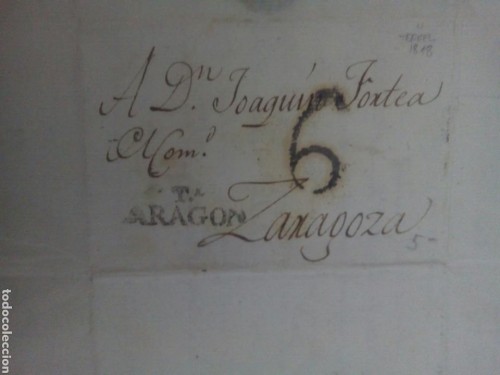 1818
A Dn. Joaquín Fortea
6
Com.o
T.a
ARAGON
Zaragoza
5-
todocoleccion